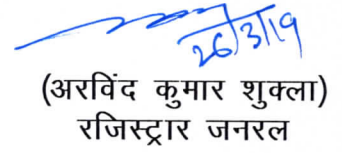 26/3/19
(अरविंद कुमार शुक्ला)
रजिस्ट्रार जनरल